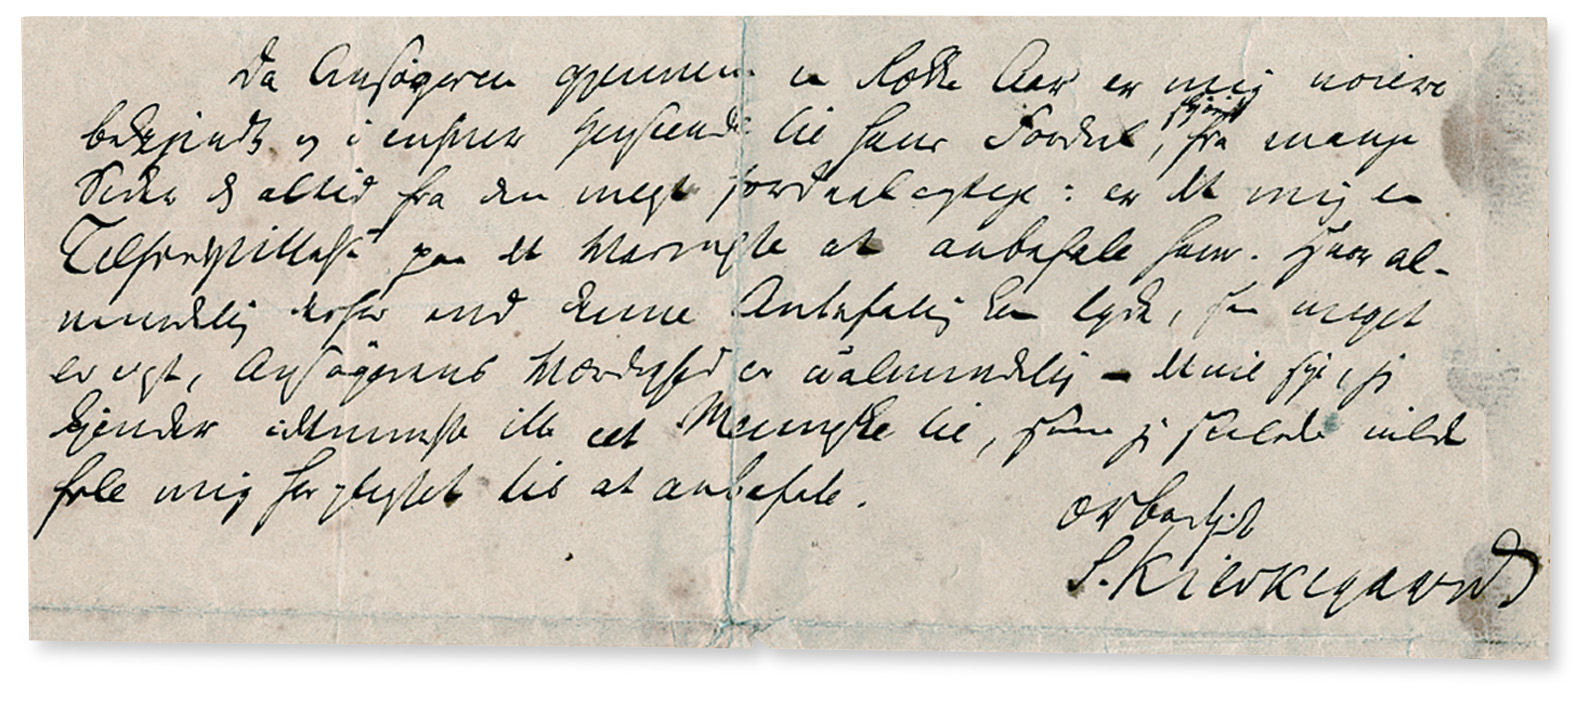 Da Ansøgeren gjennem en Række Aar er mig nøiere
bekjendt og i enhver Henseende til hans Fordeel, skjøndt fra mange
Sider og altid fra den meget fordeelagtige: er det mig en
Tilfredsstillelse paa det Varmeste at anbefale ham. Hvor al-
mindelig derfor end denne Anbefaling kan lyde, saa meget
er vist, Ansøgerens Værdighed er ualmindelig – det vil sige, jeg
kjender idetmindste ikke eet Menneske til, som jeg saaledes vilde
føle mig forpligtet til at anbefale.
ærbødigst
S. Kierkegaard